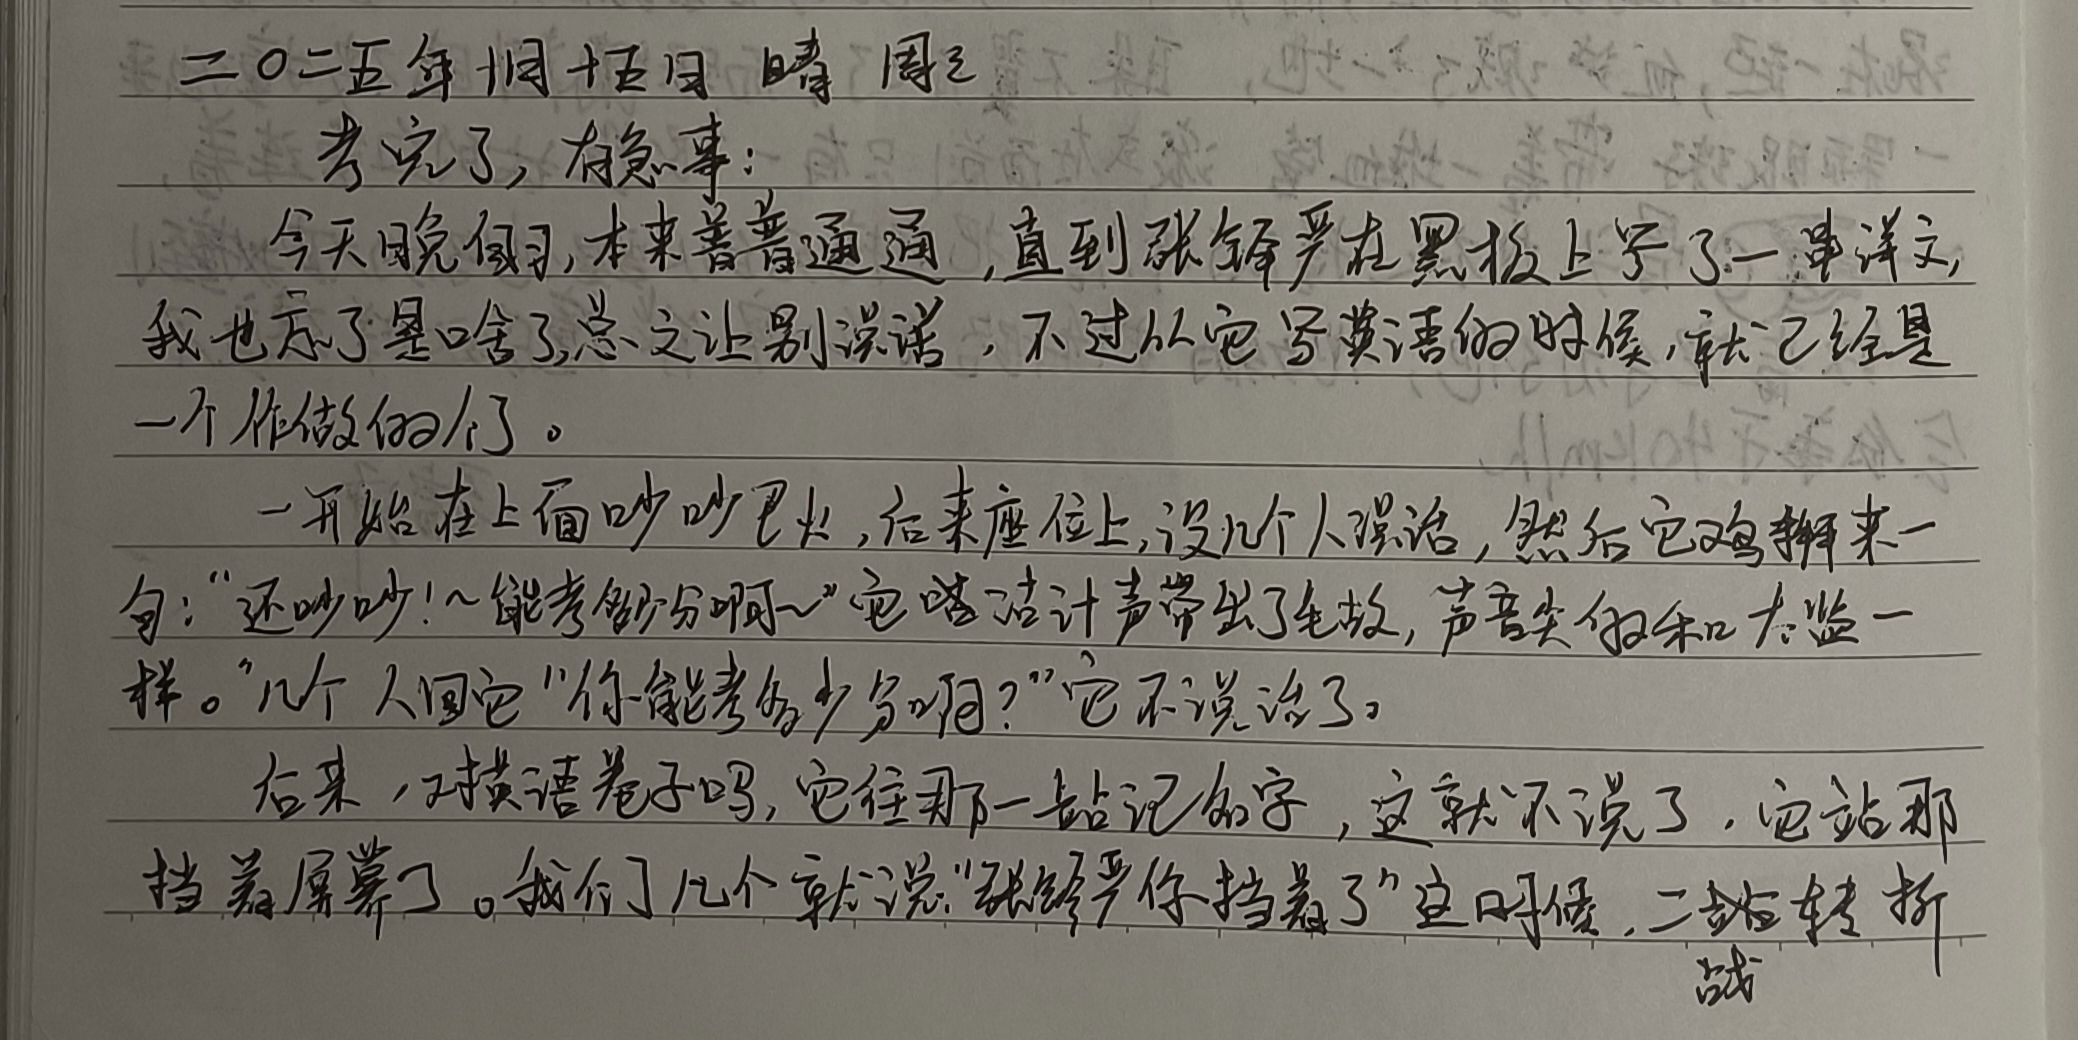 二〇二五年十月十五日 晴 周三
考完了,有急事:
今天晚自习,本来普普通通,直到张锋严在黑板上写了一串洋文,
我也忘了是啥了,总之让别说话,不过从它写英语的时候,就已经是
一个作做的人了。
一开始在上面吵吵巴火,后来座位上,没几个人说话,然后它又鸟拜来一
句:“还吵吵!~能考多少分啊~”它嗒估计声带出了毛故,声音尖的和太监一
样。”几个人回它“你能考多少分啊?”它不说话了。
后来,对英语卷子吗,它往那一站记名字,这就不说了,它站那
挡着屏幕了。我们几个就说:“张锋严你挡着了”这时候,二站转折
战